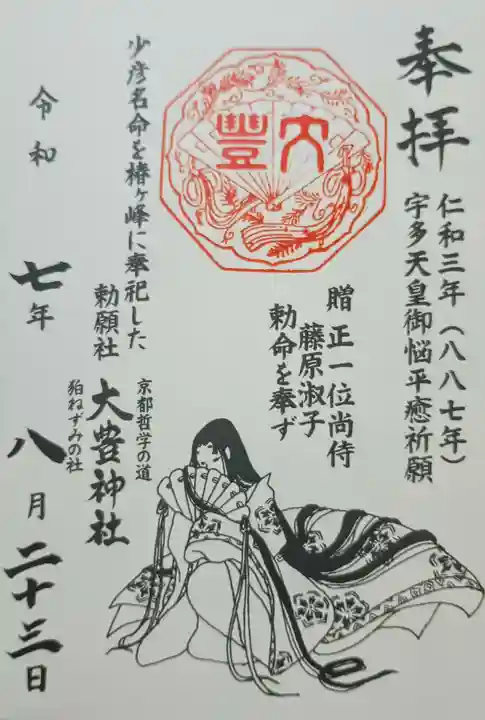 奉拝
仁和三年（八八七年）
宇多天皇御悩平癒祈願
大豊
贈 正一位尚侍
藤原淑子
勅命を奉ず
少彦名命を椿ヶ峰に奉祀した
勅願社
京都哲学の道
大豊神社
狛ねずみの社
令和
七年
八月二十三日